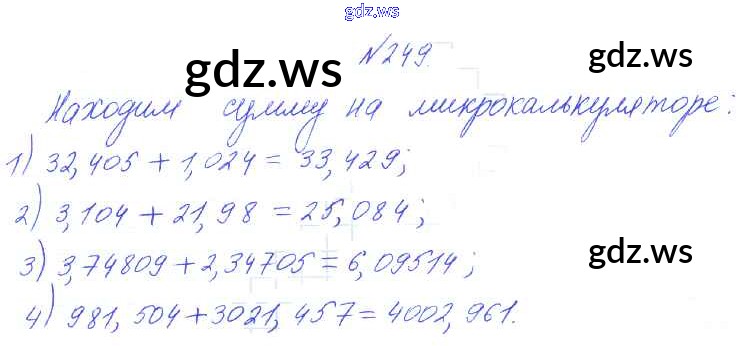 gdz.ws
№249.
gdz.ws
gdz.ws
Находим сумму на микрокалькуляторе:
1) 32,405 + 1,024 = 33,429;
2) 3,104 + 21,98 = 25,084;
3) 3,74809 + 2,34705 = 6,09514;
gdz.ws
4) 981,504 + 3021,457 = 4002,961.
gdz.ws